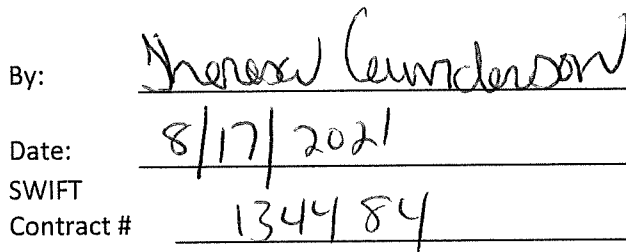 By: Theresa Gunderson
Date: 8/17/2021
SWIFT
Contract # 134484